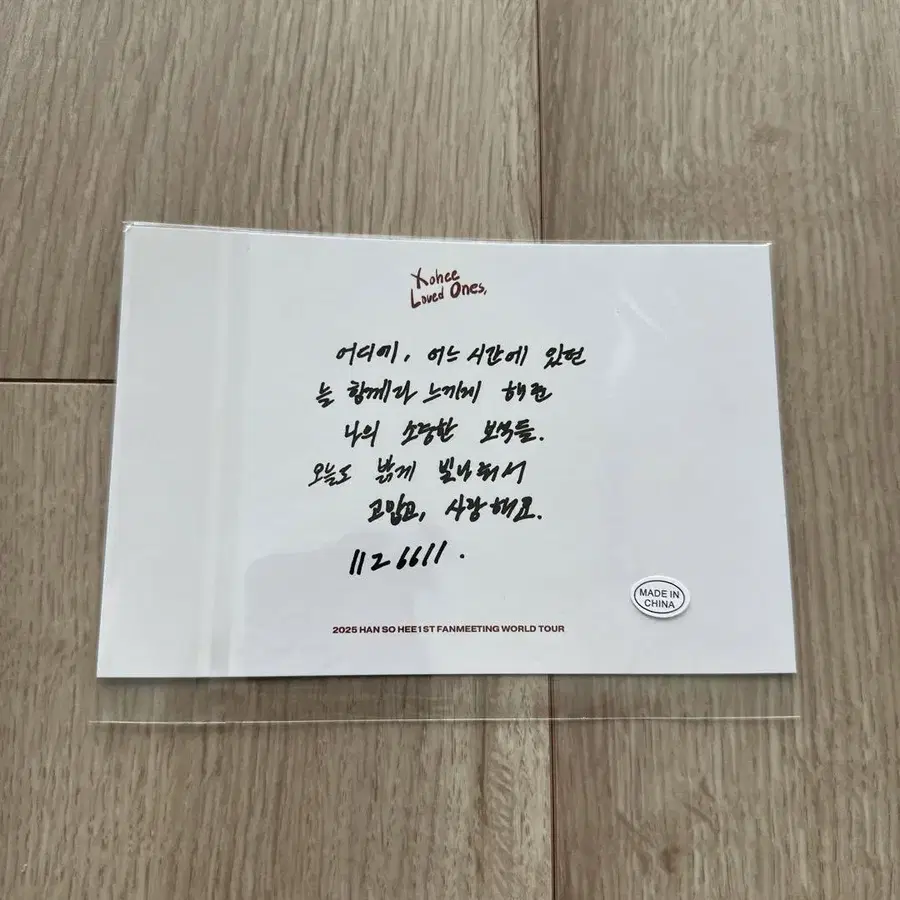 Xohee
Loved Ones,
어디에, 어느 시간에 있던
늘 함께라 느끼게 해준
나의 소중한 보석들.
오늘도 밝게 빛나줘서
고맙고, 사랑해요.
1126611.
MADE IN
CHINA
2025 HAN SO HEE1ST FANMEETING WORLD TOUR